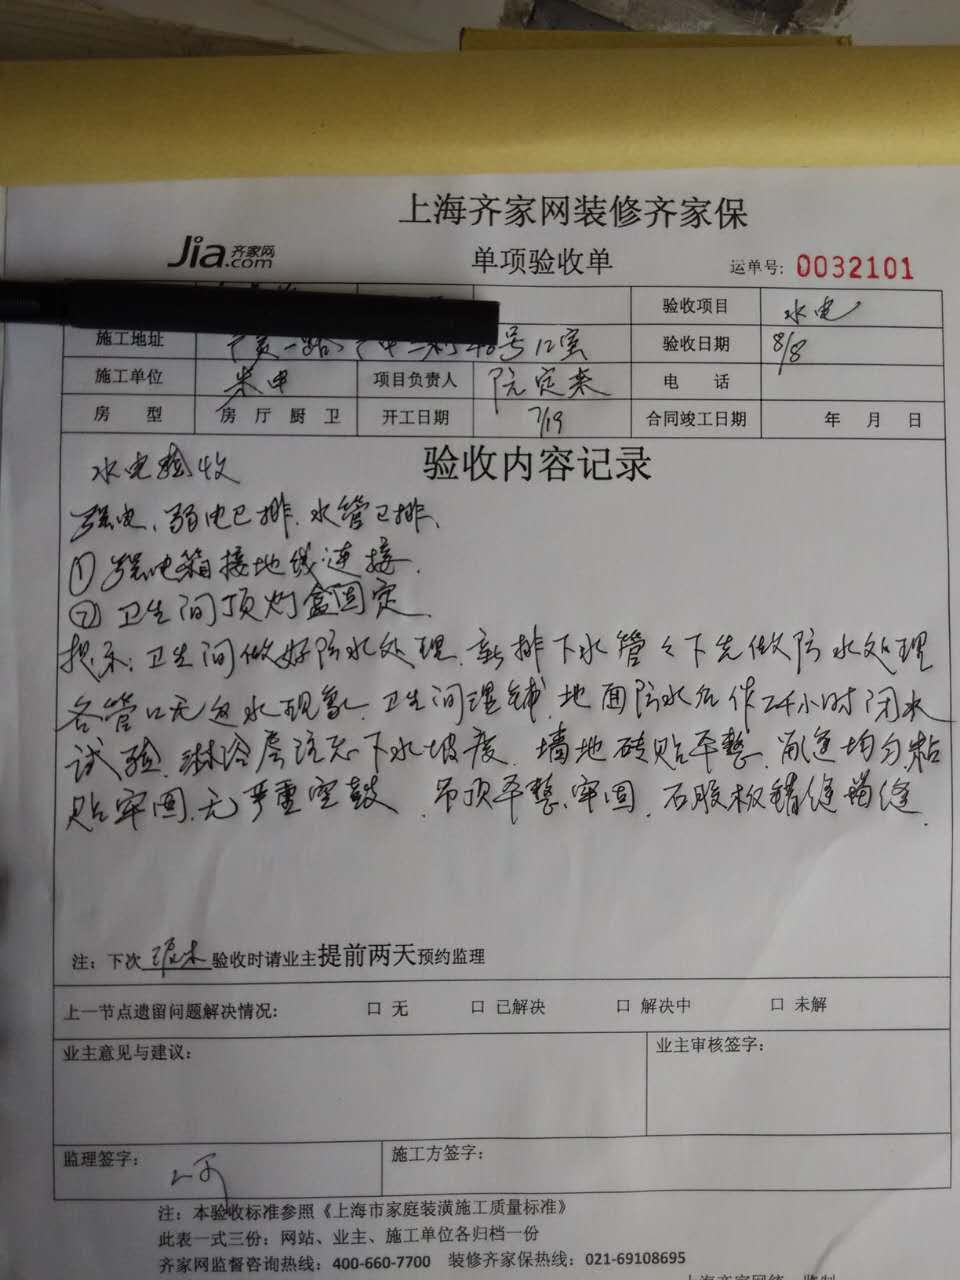 上海齐家网装修齐家保
Jia.com 齐家网
单项验收单
运单号: 0032101
验收项目 水电
施工地址 一路 号12室 验收日期 8/8
施工单位 朱申 项目负责人 阮定来 电 话
房 型 房 厅 厨 卫 开工日期 7/19 合同竣工日期 年 月 日
水电验收 验收内容记录
强电、弱电已排、水管已排、
① 强电箱接地线连接.
② 卫生间顶灯盒固定.
提示: 卫生间做好防水处理. 新排下水管之下先做防水处理
各管口无返水现象. 卫生间 地面防水后作24小时闭水
试验. 淋浴房注意下水坡度. 墙地砖贴平整. 缝均匀,粘
贴牢固,无严重空鼓. 吊顶平整,牢固. 石膏板错缝 留缝.
注: 下次 泥木 验收时请业主提前两天预约监理
上一节点遗留问题解决情况: □ 无 □ 已解决 □ 解决中 □ 未解
业主意见与建议: 业主审核签字:
监理签字: 施工方签字:
注: 本验收标准参照《上海市家庭装潢施工质量标准》
此表一式三份: 网站、业主、施工单位各归档一份
齐家网监督咨询热线: 400-660-7700 装修齐家保热线: 021-69108695